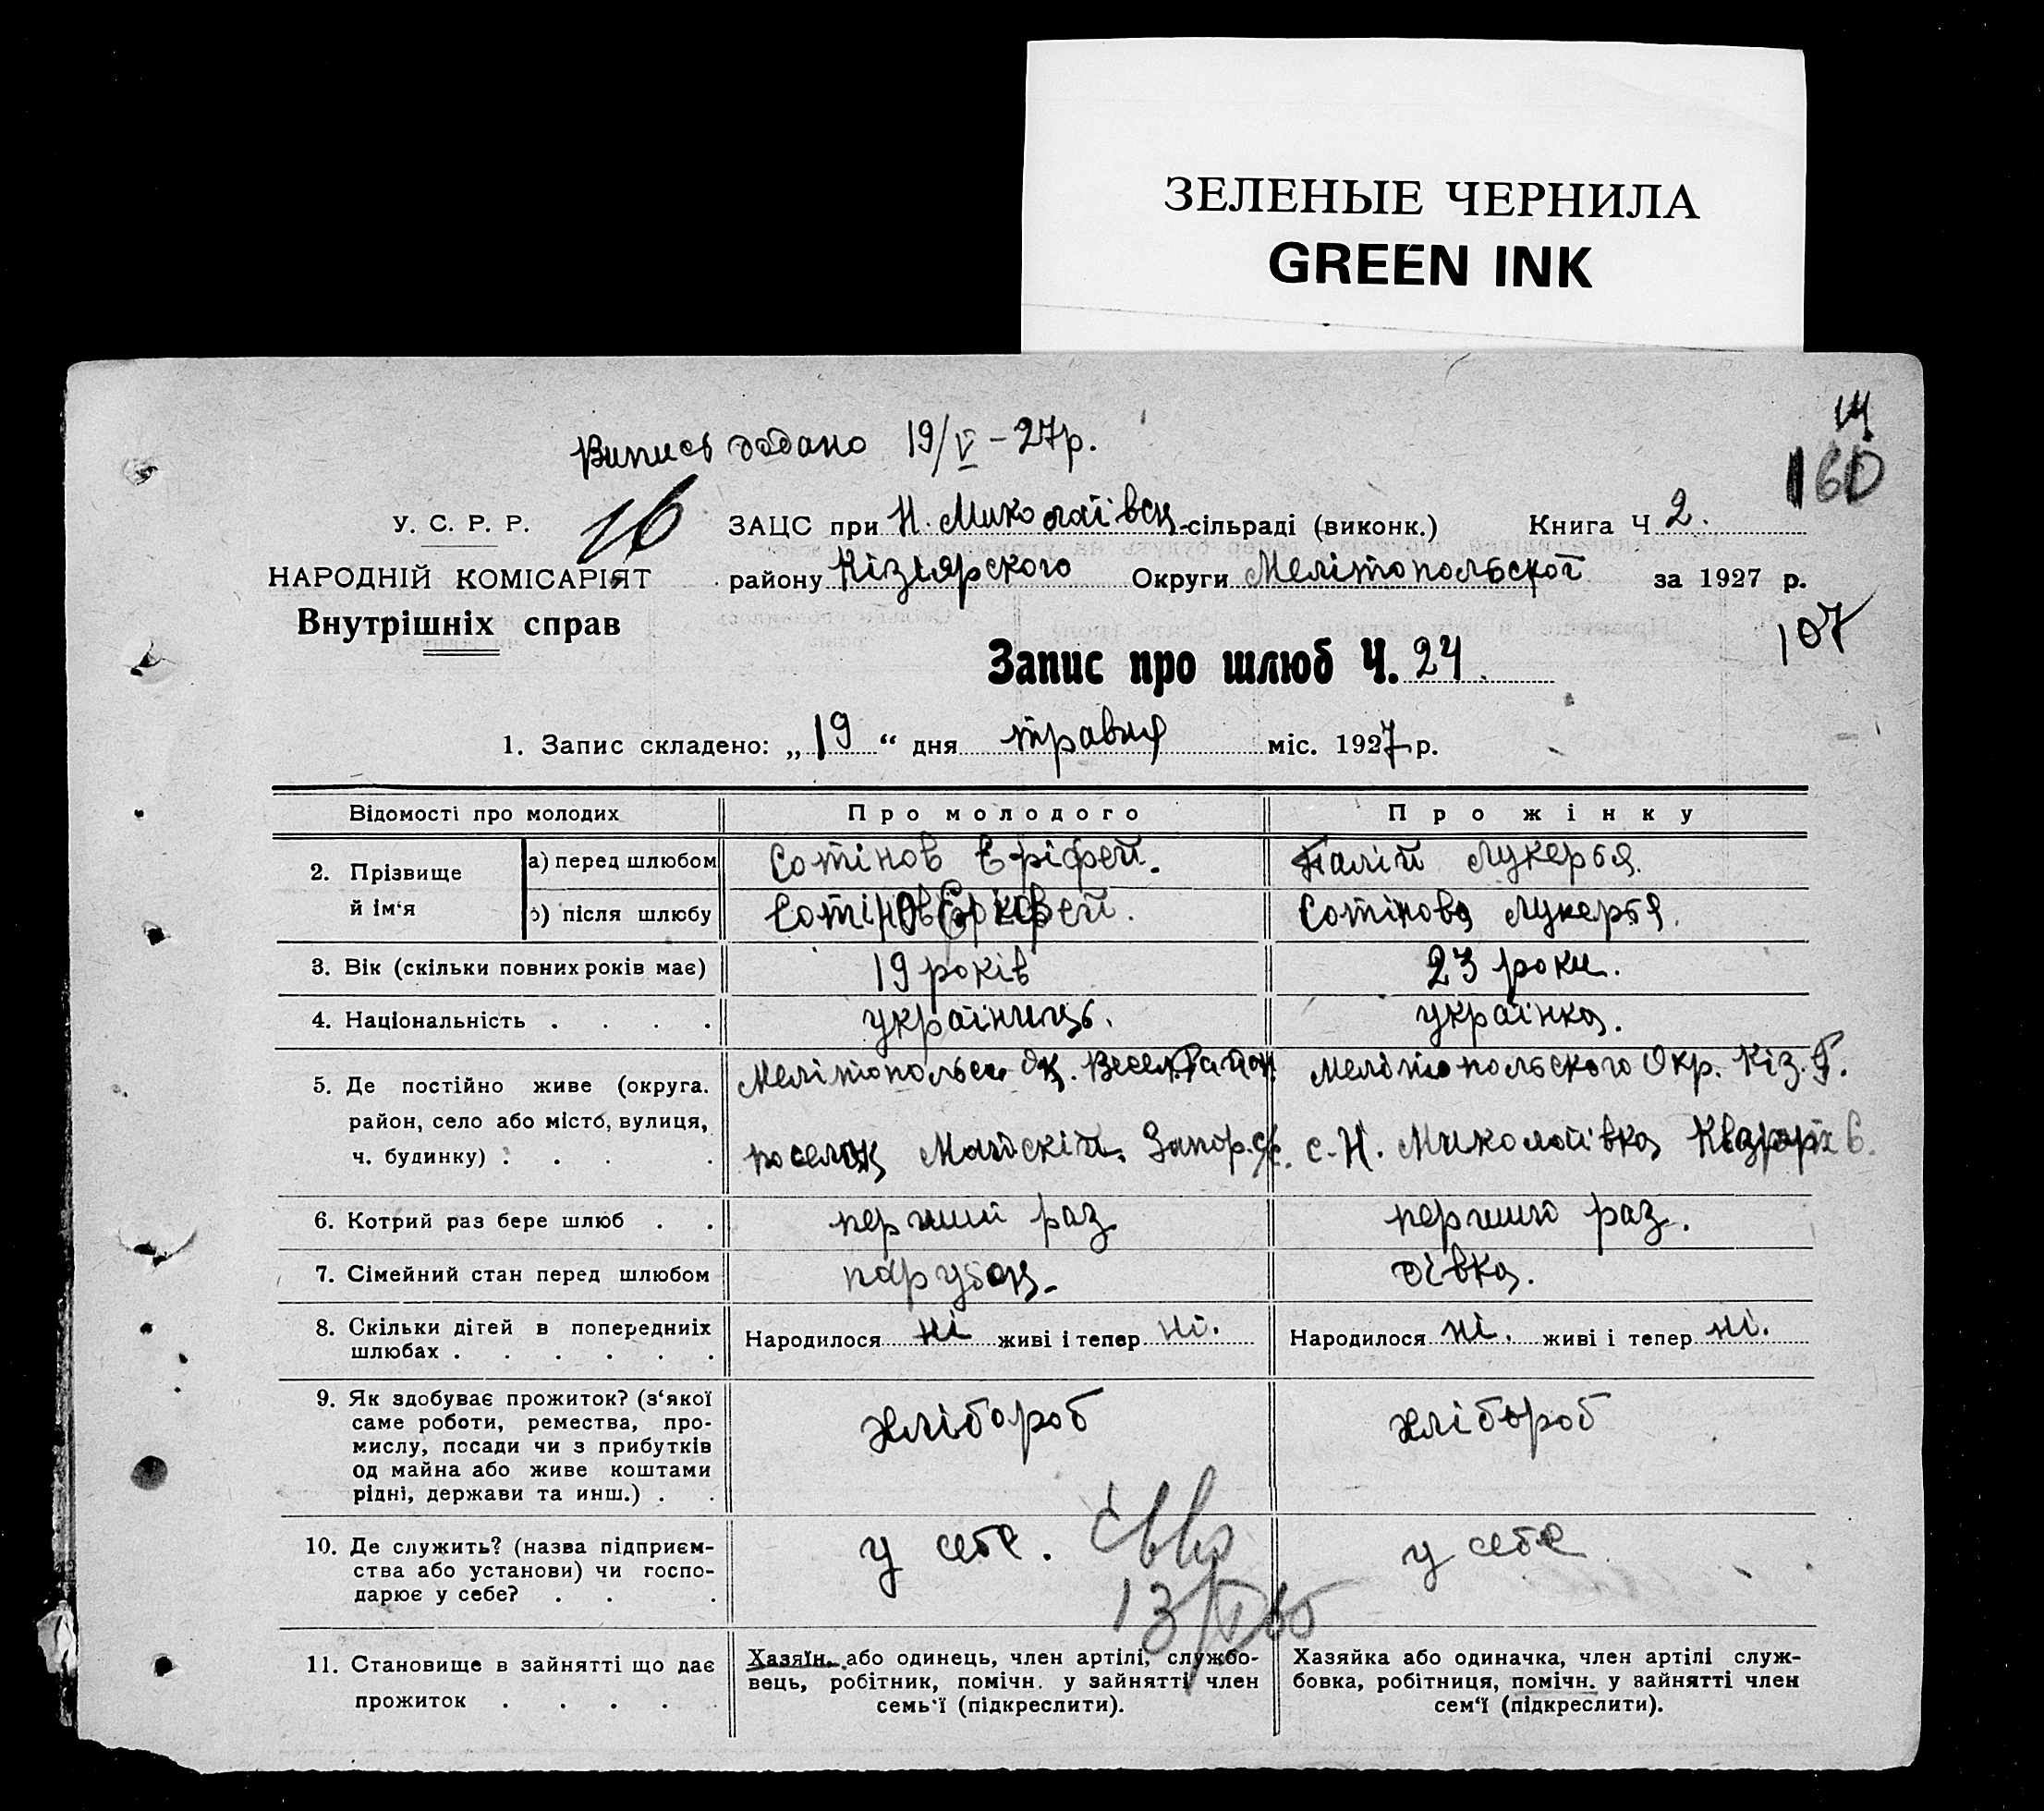 ЗЕЛЕНЫЕ ЧЕРНИЛА
GREEN INK
Випись додано 19/V – 27р.
14
160
У. С. Р. Р.
16
НАРОДНІЙ КОМІСАРІЯТ
Внутрішніх справ
ЗАЦС при Н. Миколаївськ. сільраді (виконк.) Книга Ч 2.
району Кізіярского Округи Мелітопольскої за 1927 р.
107
Запис про шлюб Ч. 24.
1. Запис складено: „19“ дня травня міс. 1927 р.
Відомості про молодих Про молодого Про жінку
2. Прізвище й ім‘я
а) перед шлюбом Сотінов Еріфей. Палій Лукерья.
б) після шлюбу Сотінов Еріфей. Сотінова Лукерья.
3. Вік (скільки повних років має) 19 років 23 роки.
4. Національність . . . . україниць. українка.
5. Де постійно живе (округа. район, село або місто, вулиця, ч. будинку) . . . .
Мелітопольск Ок. Весел. Район
поселок Майскій. Запор.
Мелітопольского Окр. Кіз. Р.
с. Н. Миколаївка
6. Котрий раз бере шлюб . . перший раз перший раз.
7. Сімейний стан перед шлюбом парубок. дівка.
8. Скільки дітей в попередниіх шлюбах . . . . . .
Народилося ні живі і тепер ні.
Народилося ні. живі і тепер ні.
9. Як здобуває прожиток? (з‘якої
саме роботи, ремества, про-
мислу, посади чи з прибутків
од майна або живе коштами
рідні, держави та инш.) . .
хлібороб
хлібороб
10. Де служить? (назва підприєм-
ства або установи) чи госпо-
дарює у себе? . . .
у себе.
у себе
11. Становище в зайнятті що дає
прожиток . . . .
Хазяїн. або одинець, член артілі, службо-
вець, робітник, помічн. у зайнятті член
семь‘ї (підкреслити).
Хазяйка або одиначка, член артілі служ-
бовка, робітниця, помічн. у зайнятті член
сем‘ї (підкреслити).